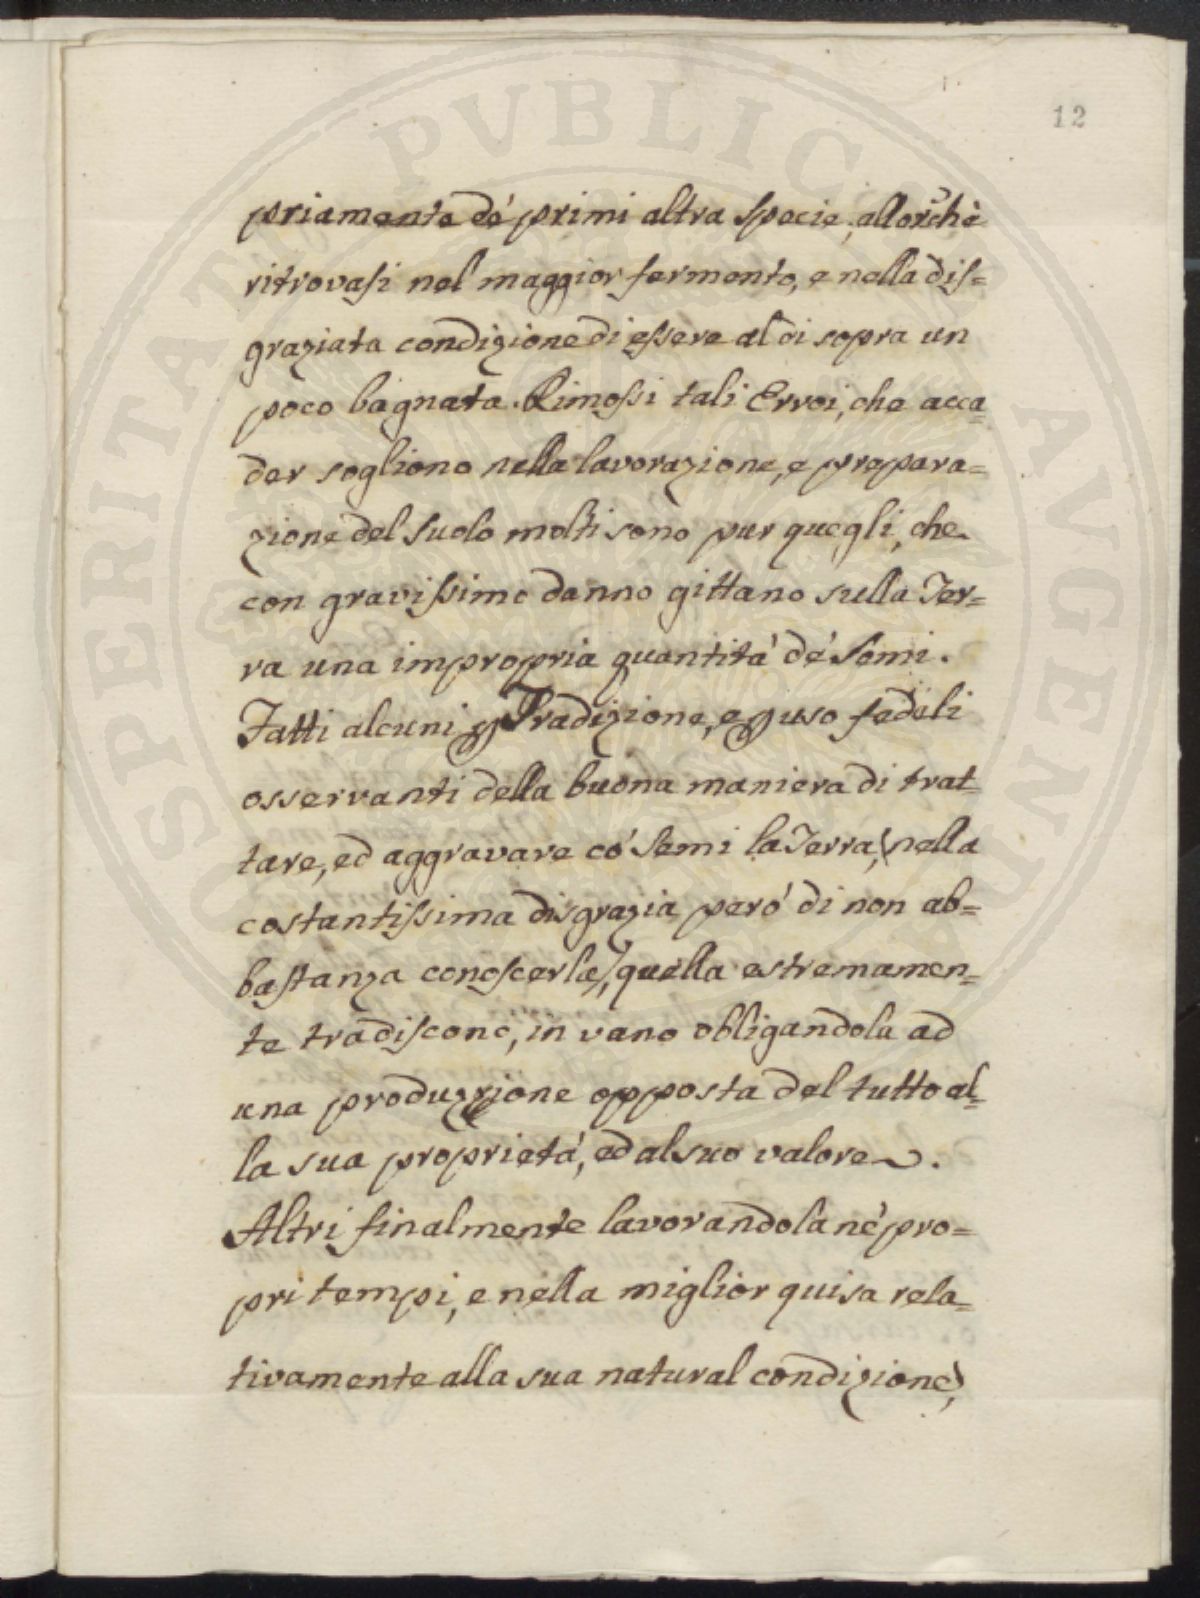 12
priamente de' primi altra specie, allorchè
ritrovasi nel maggior fermento, e nella dis=
graziata condizione di essere al di sopra un
poco bagnata. Rimossi tali Errori, che acca=
der sogliono nella lavorazione, e prepara=
zione del suolo molti sono pur quegli, che
con gravissimo danno gittano sulla Ter=
ra una impropria quantità de' Semi.
Fatti alcuni p Tradizione, e p uso fedeli
osservanti della buona maniera di trat=
tare, ed aggravare co' Semi la Terra, (nella
costantissima disgrazia però di non ab=
bastanza conoscerla), quella estremamen=
te tradiscono, in vano obligandola ad
una produzzione opposta del tutto al=
la sua proprietà, ed al suo valore.
Altri finalmente lavorandola ne' pro=
pri tempi, e nella miglior guisa rela=
tivamente alla sua natural condizione),
PROSPERITATI PVBLICAE AVGENDAE